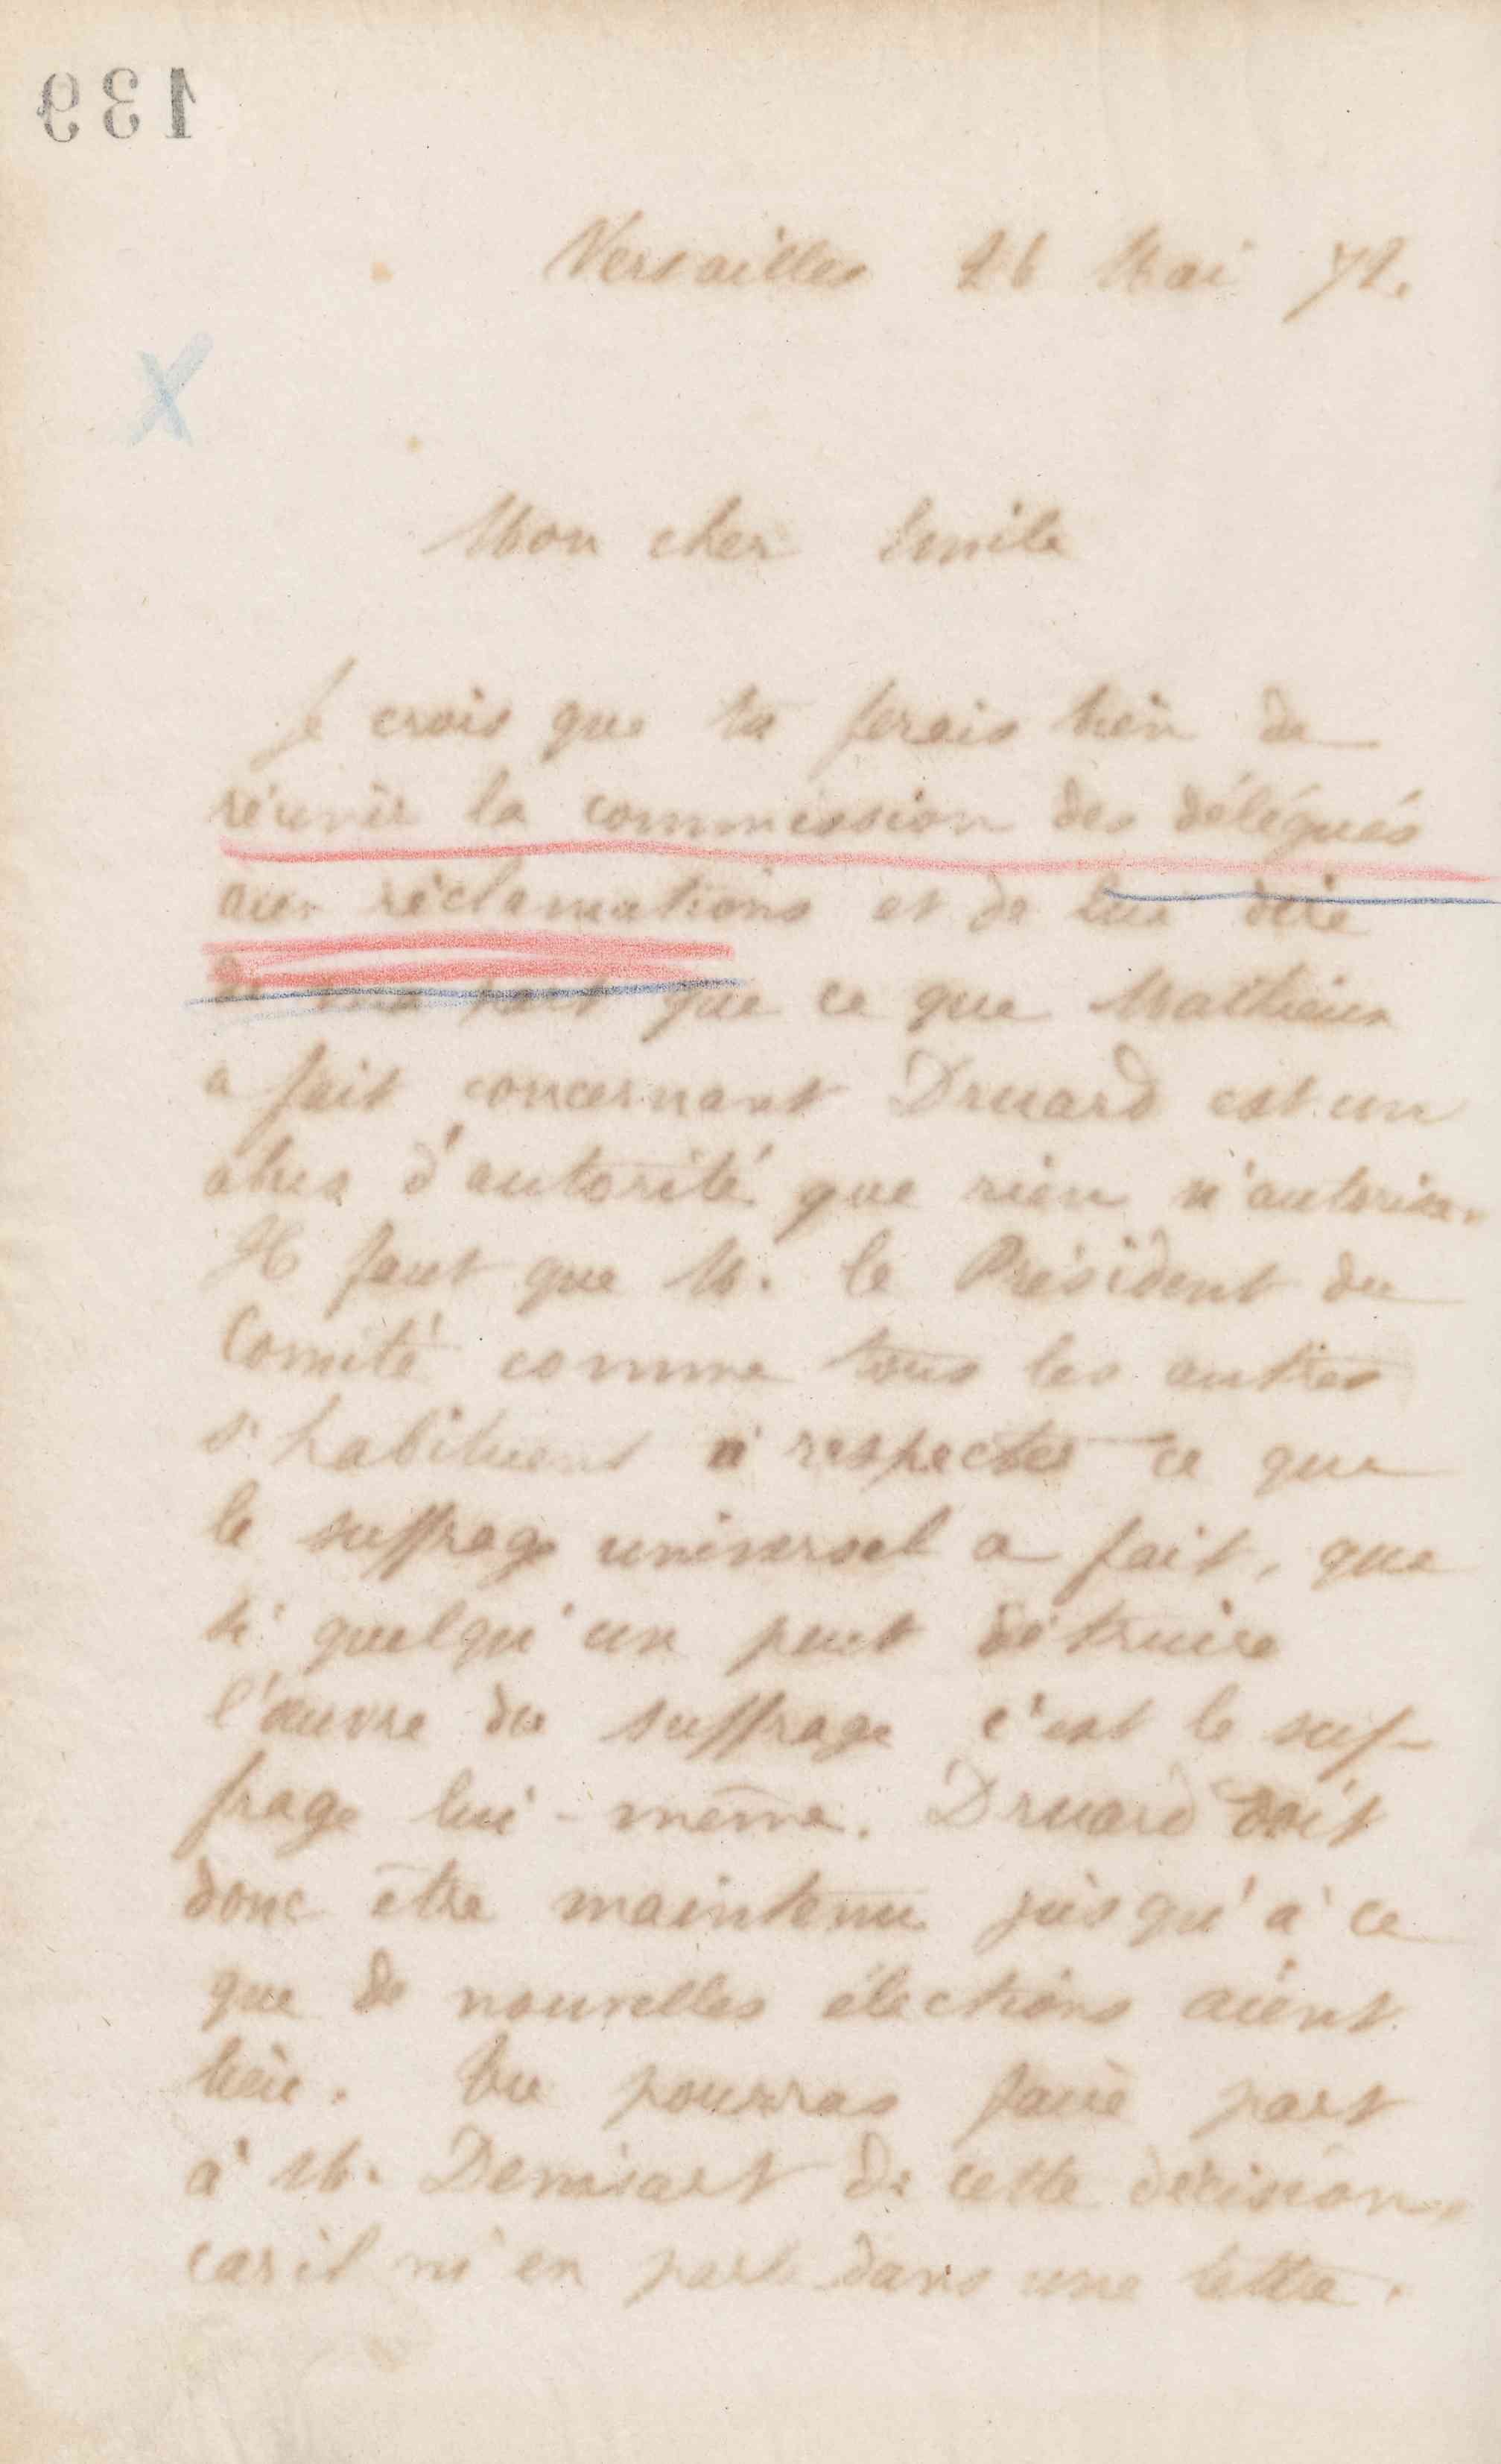 139
Versailles 26 Mai 72.
Mon cher Emile
Je crois que tu ferais bien de
réunir la commission des délégués
aux réclamations et de lui dire
de ma part que ce que Mathieu
a fait concernant Druard est un
abus d'autorité que rien n'autorise.
Il faut que M. le Président du
Comité comme tous les autres
s'habituent à respecter ce que
le suffrage universel a fait, que
si quelqu'un peut détruire
l'œuvre du suffrage c'est le suf-
frage lui-même. Druard doit
donc être maintenu jusqu'à ce
que de nouvelles élections aient
lieu. Tu pourras faire part
à M. Denisart de cette décision,
car il m'en parle dans une lettre.